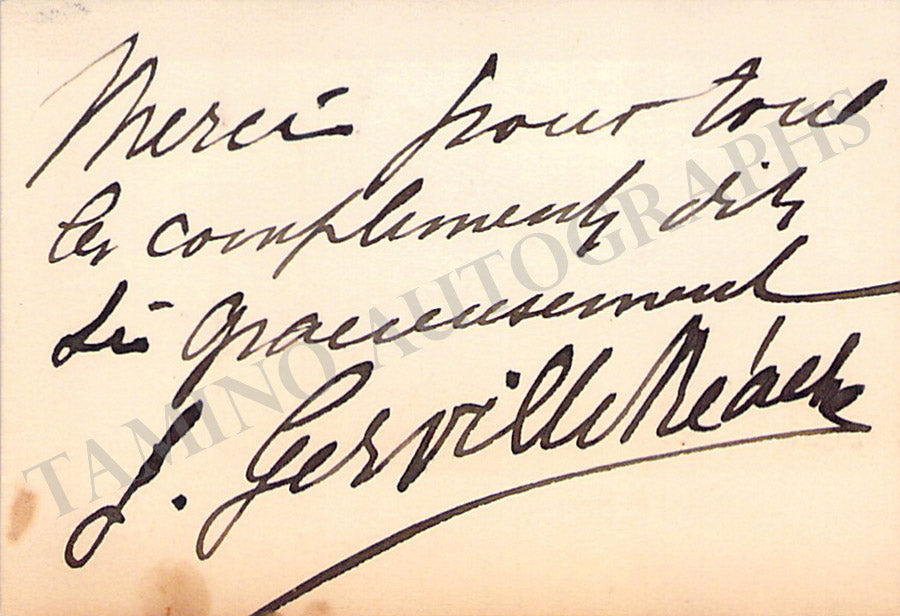 Merci pour tous
les compliments dits
si gracieusement
J. Gerville Réache
TAMINO AUTOGRAPHS